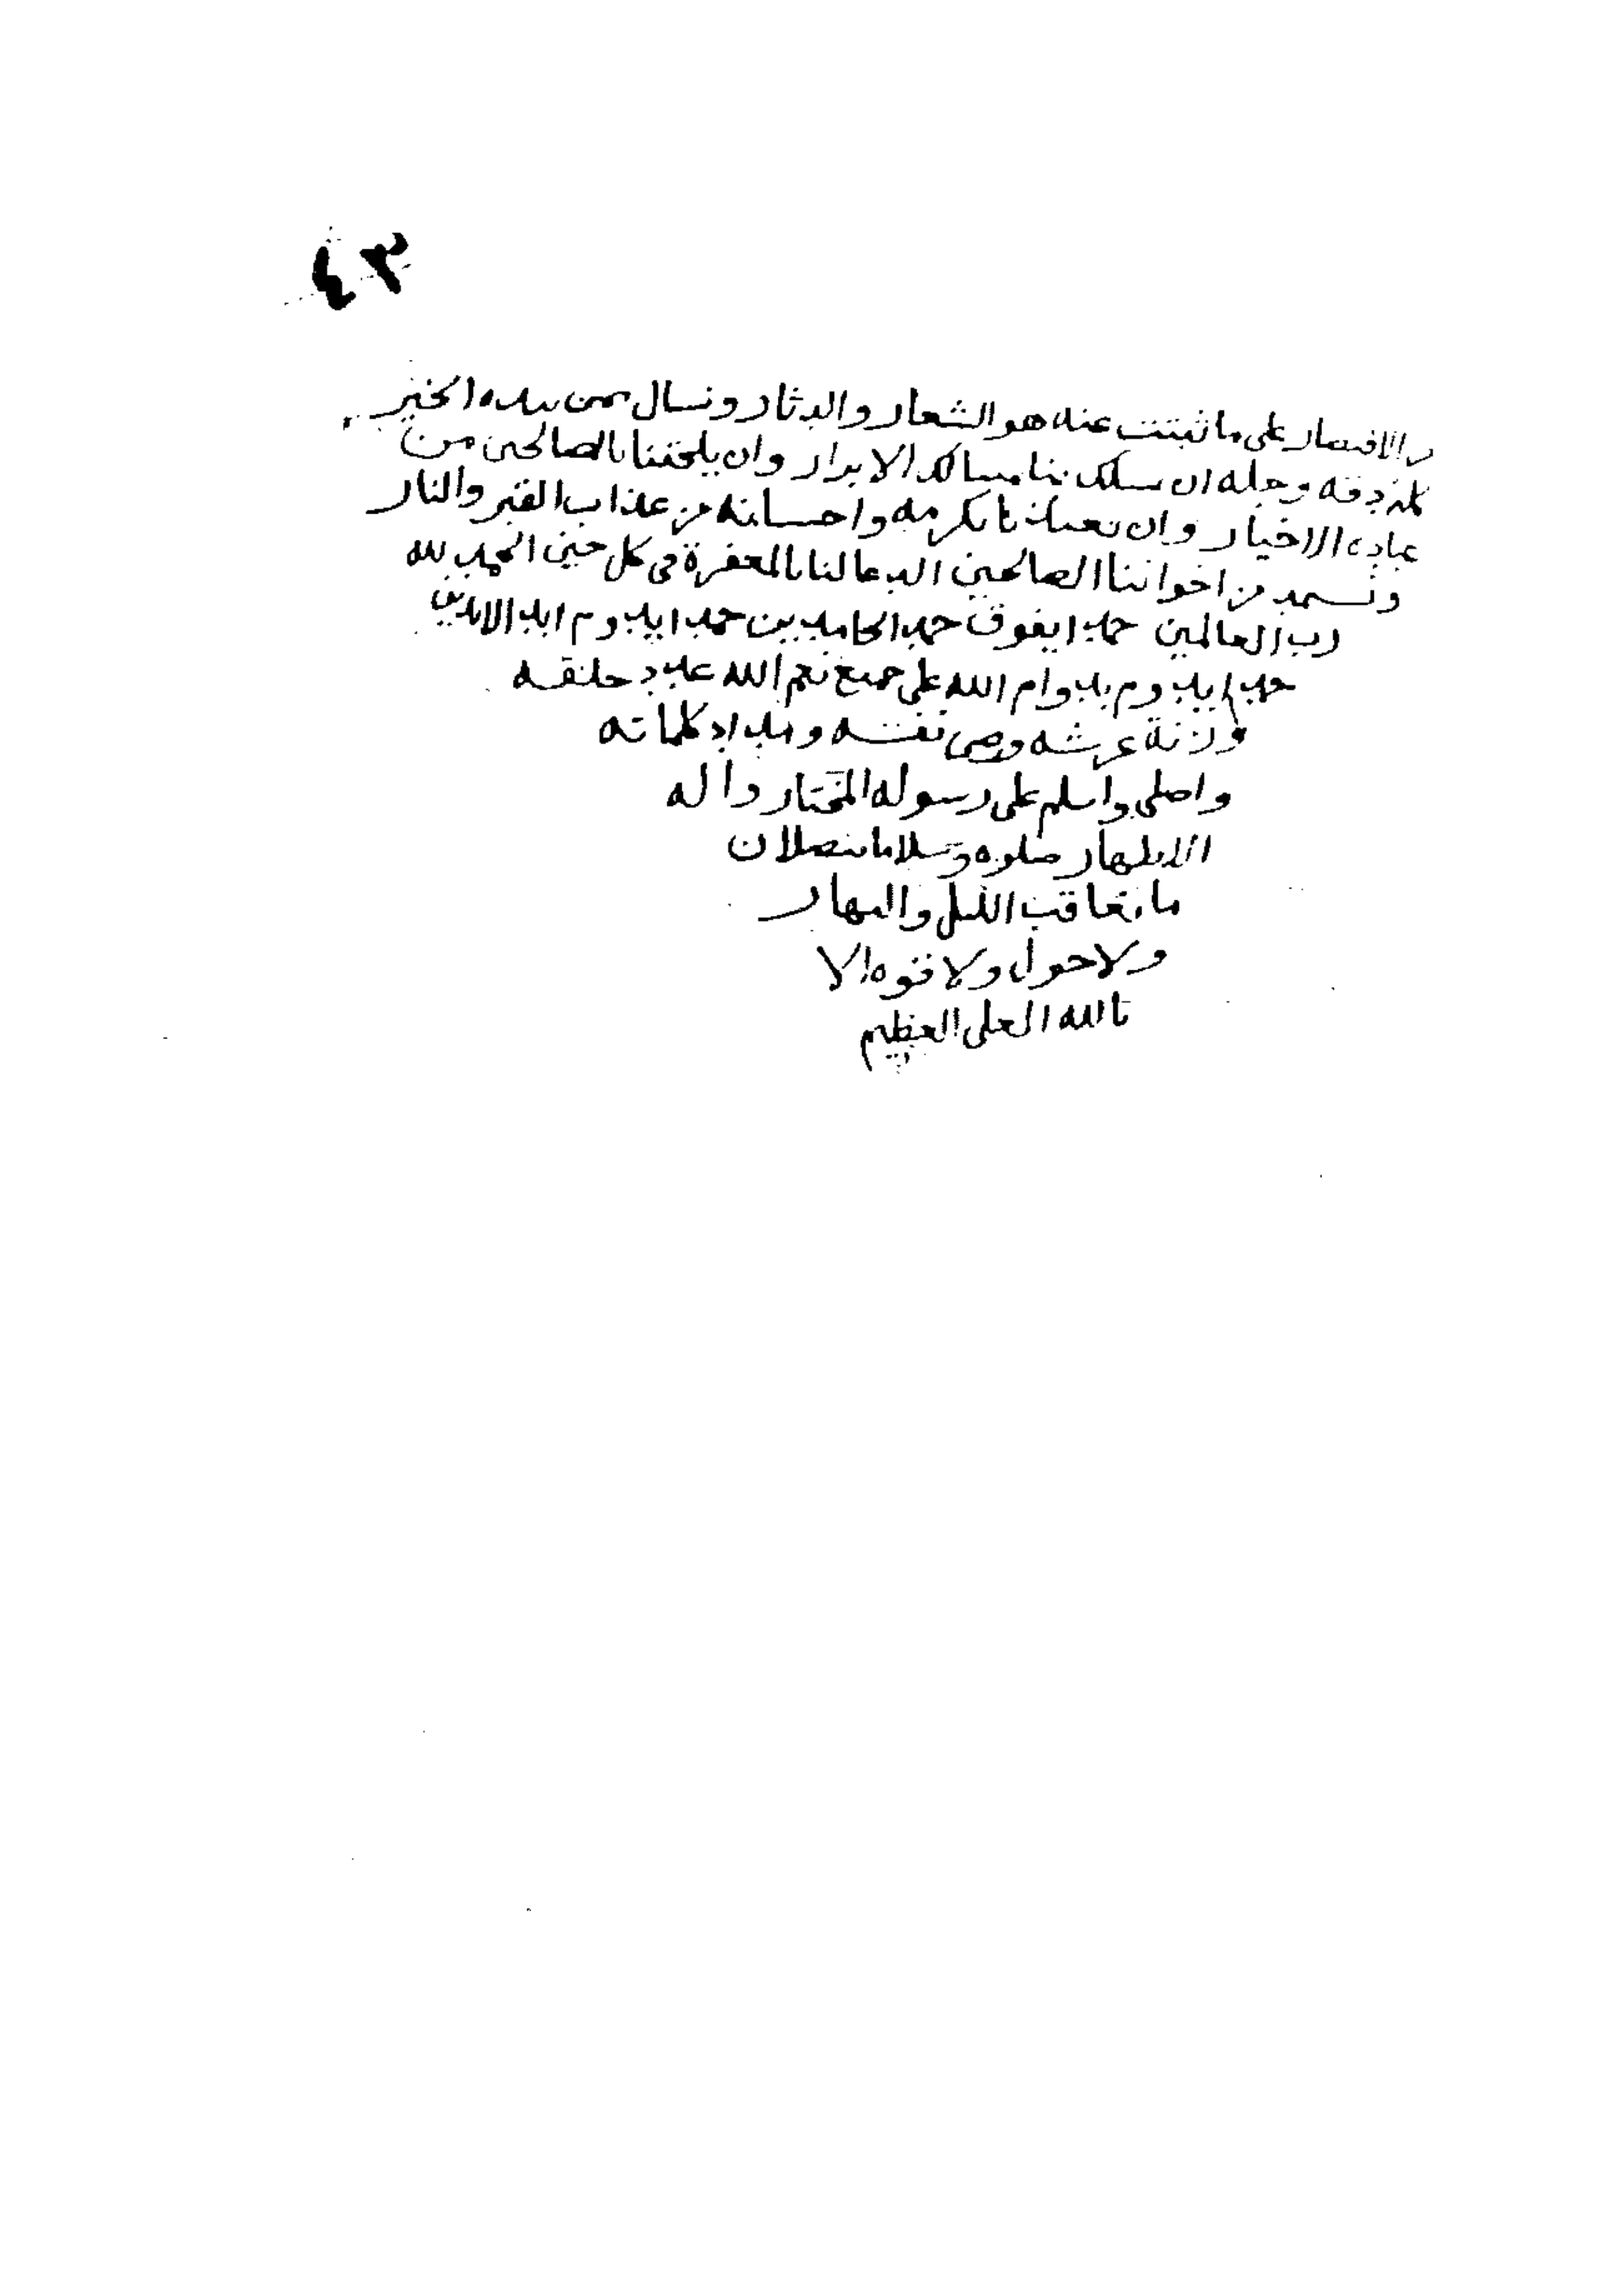 ٤٣
الاقتصار على ما ثبتت عنه هو الشعار والدثار ونسال ممن بيده الخير
كله دقه وجله ان يسلك بنا مسالك الابرار وان يلحقنا بالصالحين من
عباده الاخيار وان يعيذنا بكرمه واحسانه من عذاب القبر والنار
ونستمد من اخواننا الصالحين الدعا لنا بالمغفرة فى كل حين الحمد لله
رب العالمين حمدا يفوق حمد الحامدين حمدا يدوم ابد الابدين
حمدا يدوم بدوام الله على جميع نعم الله عدد خلقه
وزنة عرشه ورضى نفسه ومداد كلماته
واصلى واسلم على رسوله المختار واله
الاطهار صلوه وسلاما يتصلان
ما تعاقب الليل والنهار
ولا حول ولا قوه الا
بالله العلى العظيم